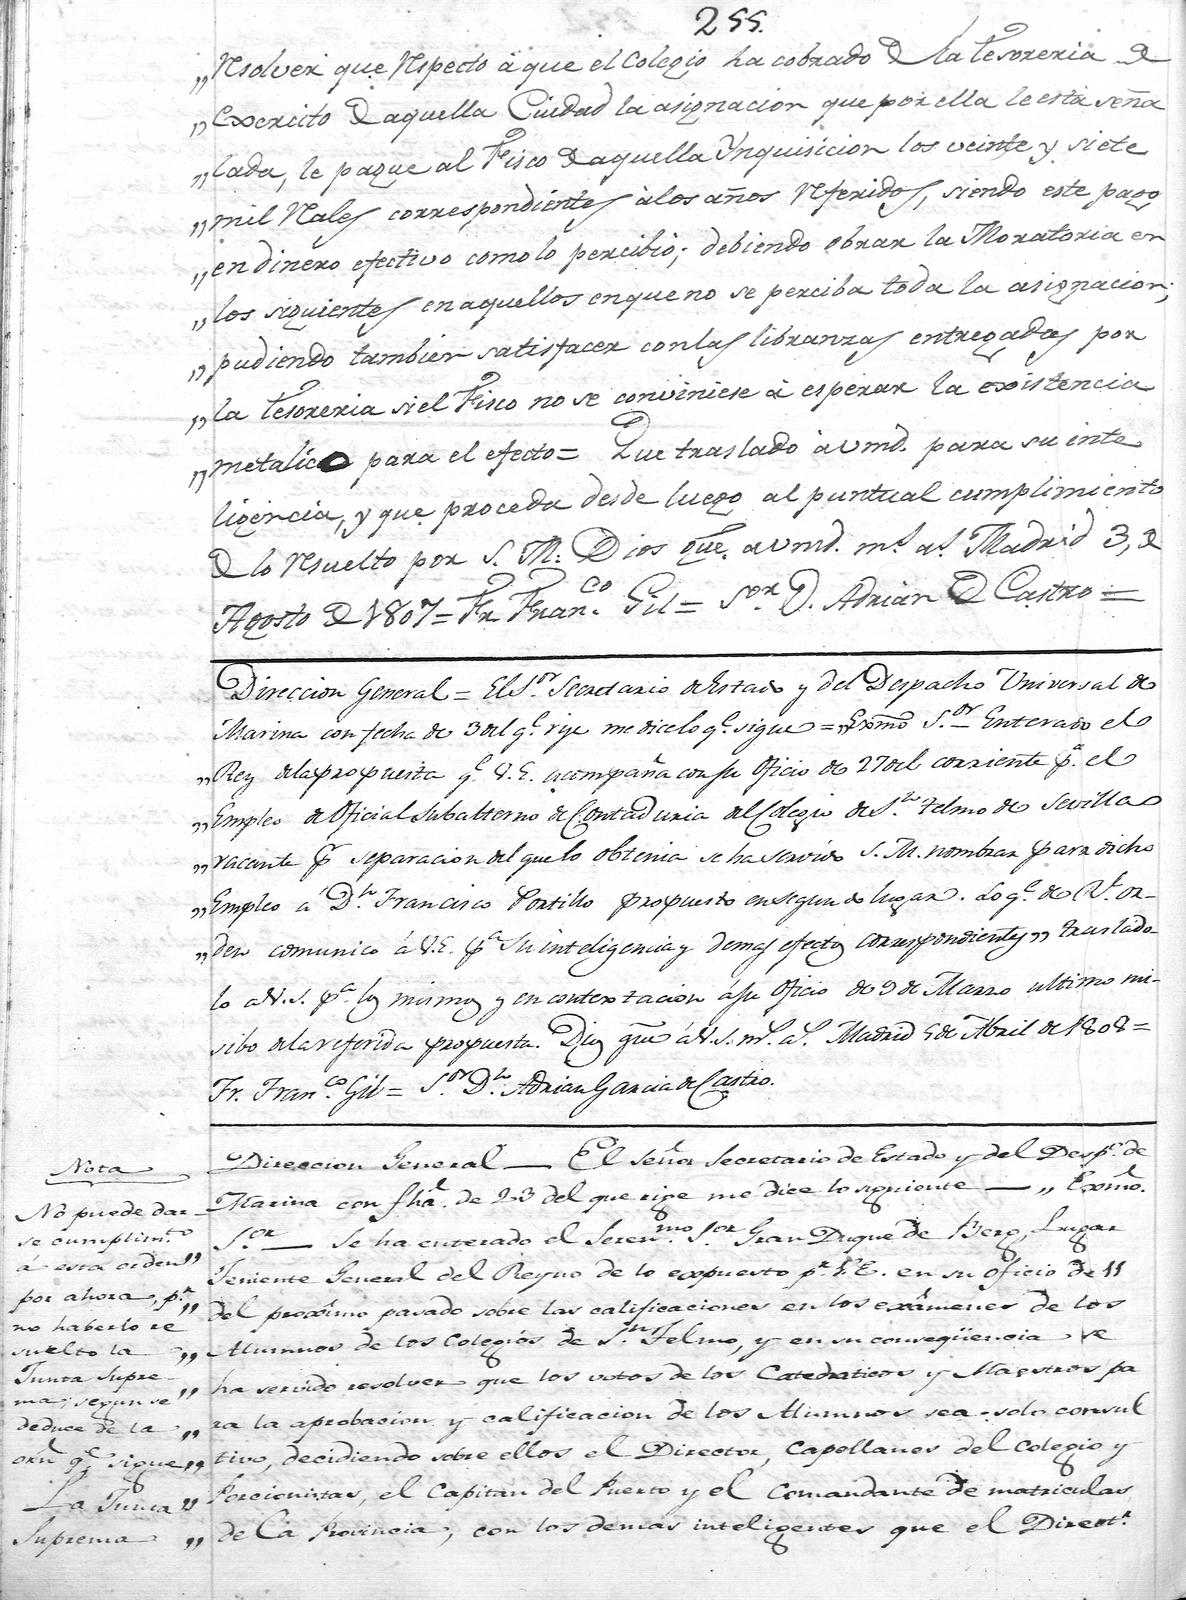 255.
„ Resolver que Respecto à que el Colegio ha cobrado de la Tesoreria de
„ Exercito de aquella Ciudad la asignacion que por ella le està seña
„ lada, le pague al Fisco de aquella Ynquisicion los veinte y siete
„ mil Reales correspondientes à los años Referidos, siendo este pago
„ en dinero efectivo como lo percibiò; debiendo obrar la Moratoria en
„ los siguientes en aquellos en que no se perciba toda la asignacion;
„ pudiendo tambien satisfacer con las libranzas entregadas por
„ la Tesoreria si el Fisco no se conviniese à esperar la existencia
„ metalico para el efecto = Que traslado à vmd. para su inte
ligencia, y que proceda desde luego al puntual cumplimiento
de lo Resuelto por S. M. Dios gue. a vmd. ms. as. Madrid 3, de
Agosto de 1807 = Fr. Franco. Gil = Sor. D. Adrian de Castro =
Direccion General = El Sor. Secretario de Estado y del Despacho Universal de
Marina con fecha de 3 del qe. rije me dice lo qe. sigue = „ Exmo Sor. Enterado el
„ Rey de la propuesta qe. V.E. acompaña con su Oficio de 27 del corriente pa. el
„ Empleo de Oficial Subalterno de Contaduria del Colegio de Sn. Telmo de Sevilla
„ vacante pr. separacion del que lo obtenia se ha servido S. M. nombrar para dicho
„ Empleo á Dn. Francisco Portillo propuesto en segundo lugar. Lo qe. de Rl. or-
„ den comunico á V.E. pa. su inteligencia y demas efectos correspondientes „ traslado-
lo a V.S. pa. los mismos y en contextacion á su Oficio de 9 de Marzo ultimo mi-
sibo de la referida propuesta. Dios gue á V.S. ms. as. Madrid 5 de Abril de 1808 =
Fr. Franco. Gil = Sor. Dn. Adrian Garcia de Castro.
Direccion General — El señor Secretario de Estado y del Despo. de
Marina con fha. de 23 del que rige me dice lo siguiente — „ Exmo.
Sor. — Se ha enterado el Serenmo. Sor. Gran Duque de Berg, Lugar
„ Teniente General del Reyno de lo expuesto pr. V.E. en su oficio de 11
„ del proximo pasado sobre las calificaciones en los exâmenes de los
„ Alumnos de los Colegios de Sn. Telmo, y en su conseqüencia se
„ ha servido resolver que los votos de los Catedraticos y Maestros pa
„ ra la aprobacion y calificacion de los Alumnos sea solo consul
„ tivo, decidiendo sobre ellos el Director, Capellanes del Colegio y
„ Porcionistas, el Capitan del Puerto y el Comandante de matriculas
„ de la Provincia, con los demas inteligentes que el Directr.
Nota
No puede dar-
se cumplimto.
á esta orden
por ahora, pr.
no haberlo re
suelto la
Junta Supre-
ma; segun se
deduce de la
orn. qe. sigue
La Junta
Suprema